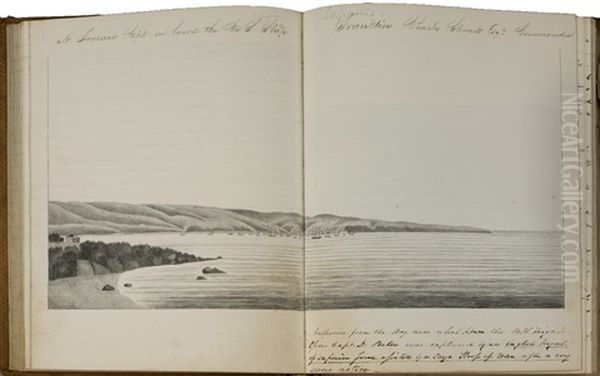 at Several Kept on board the U. S. Ship
Franklin Charles Stewart Esqr. Commander
from the Bay near which place the U.S. Frigate
Essex Capt. D. Porter was captured by an English Frigate
of superior force assisted by a large Sloop of War after a very
action
NiceArtGallery.com